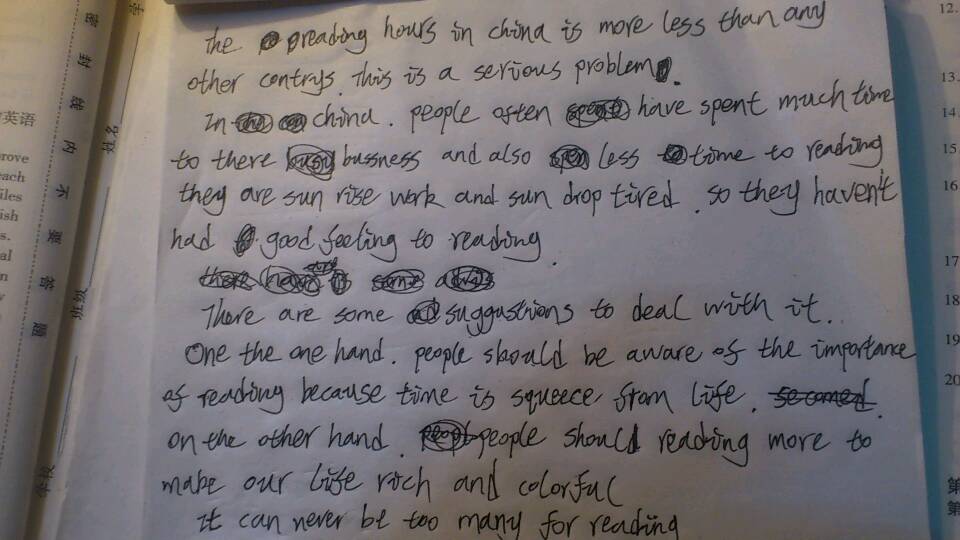 the reading hours in china is more less than any
other contrys. This is a serious problem.
In china. people often have spent much time
to there bussness and also less time to reading
they are sun rise work and sun drop tired. so they haven't
had good feeling to reading.
There are some suggustions to deal with it.
One the one hand. people should be aware of the importance
of reading because time is squeece from life.
on the other hand. people should reading more to
make our life rich and colorful
it can never be too many for reading
英语
rove
each
iles
ish
s.
al
n
密 封 线 内 不 要 答 题
学
姓名
班级
学校
12.
13.
14.
15.
16
17
18
19
20
第
第